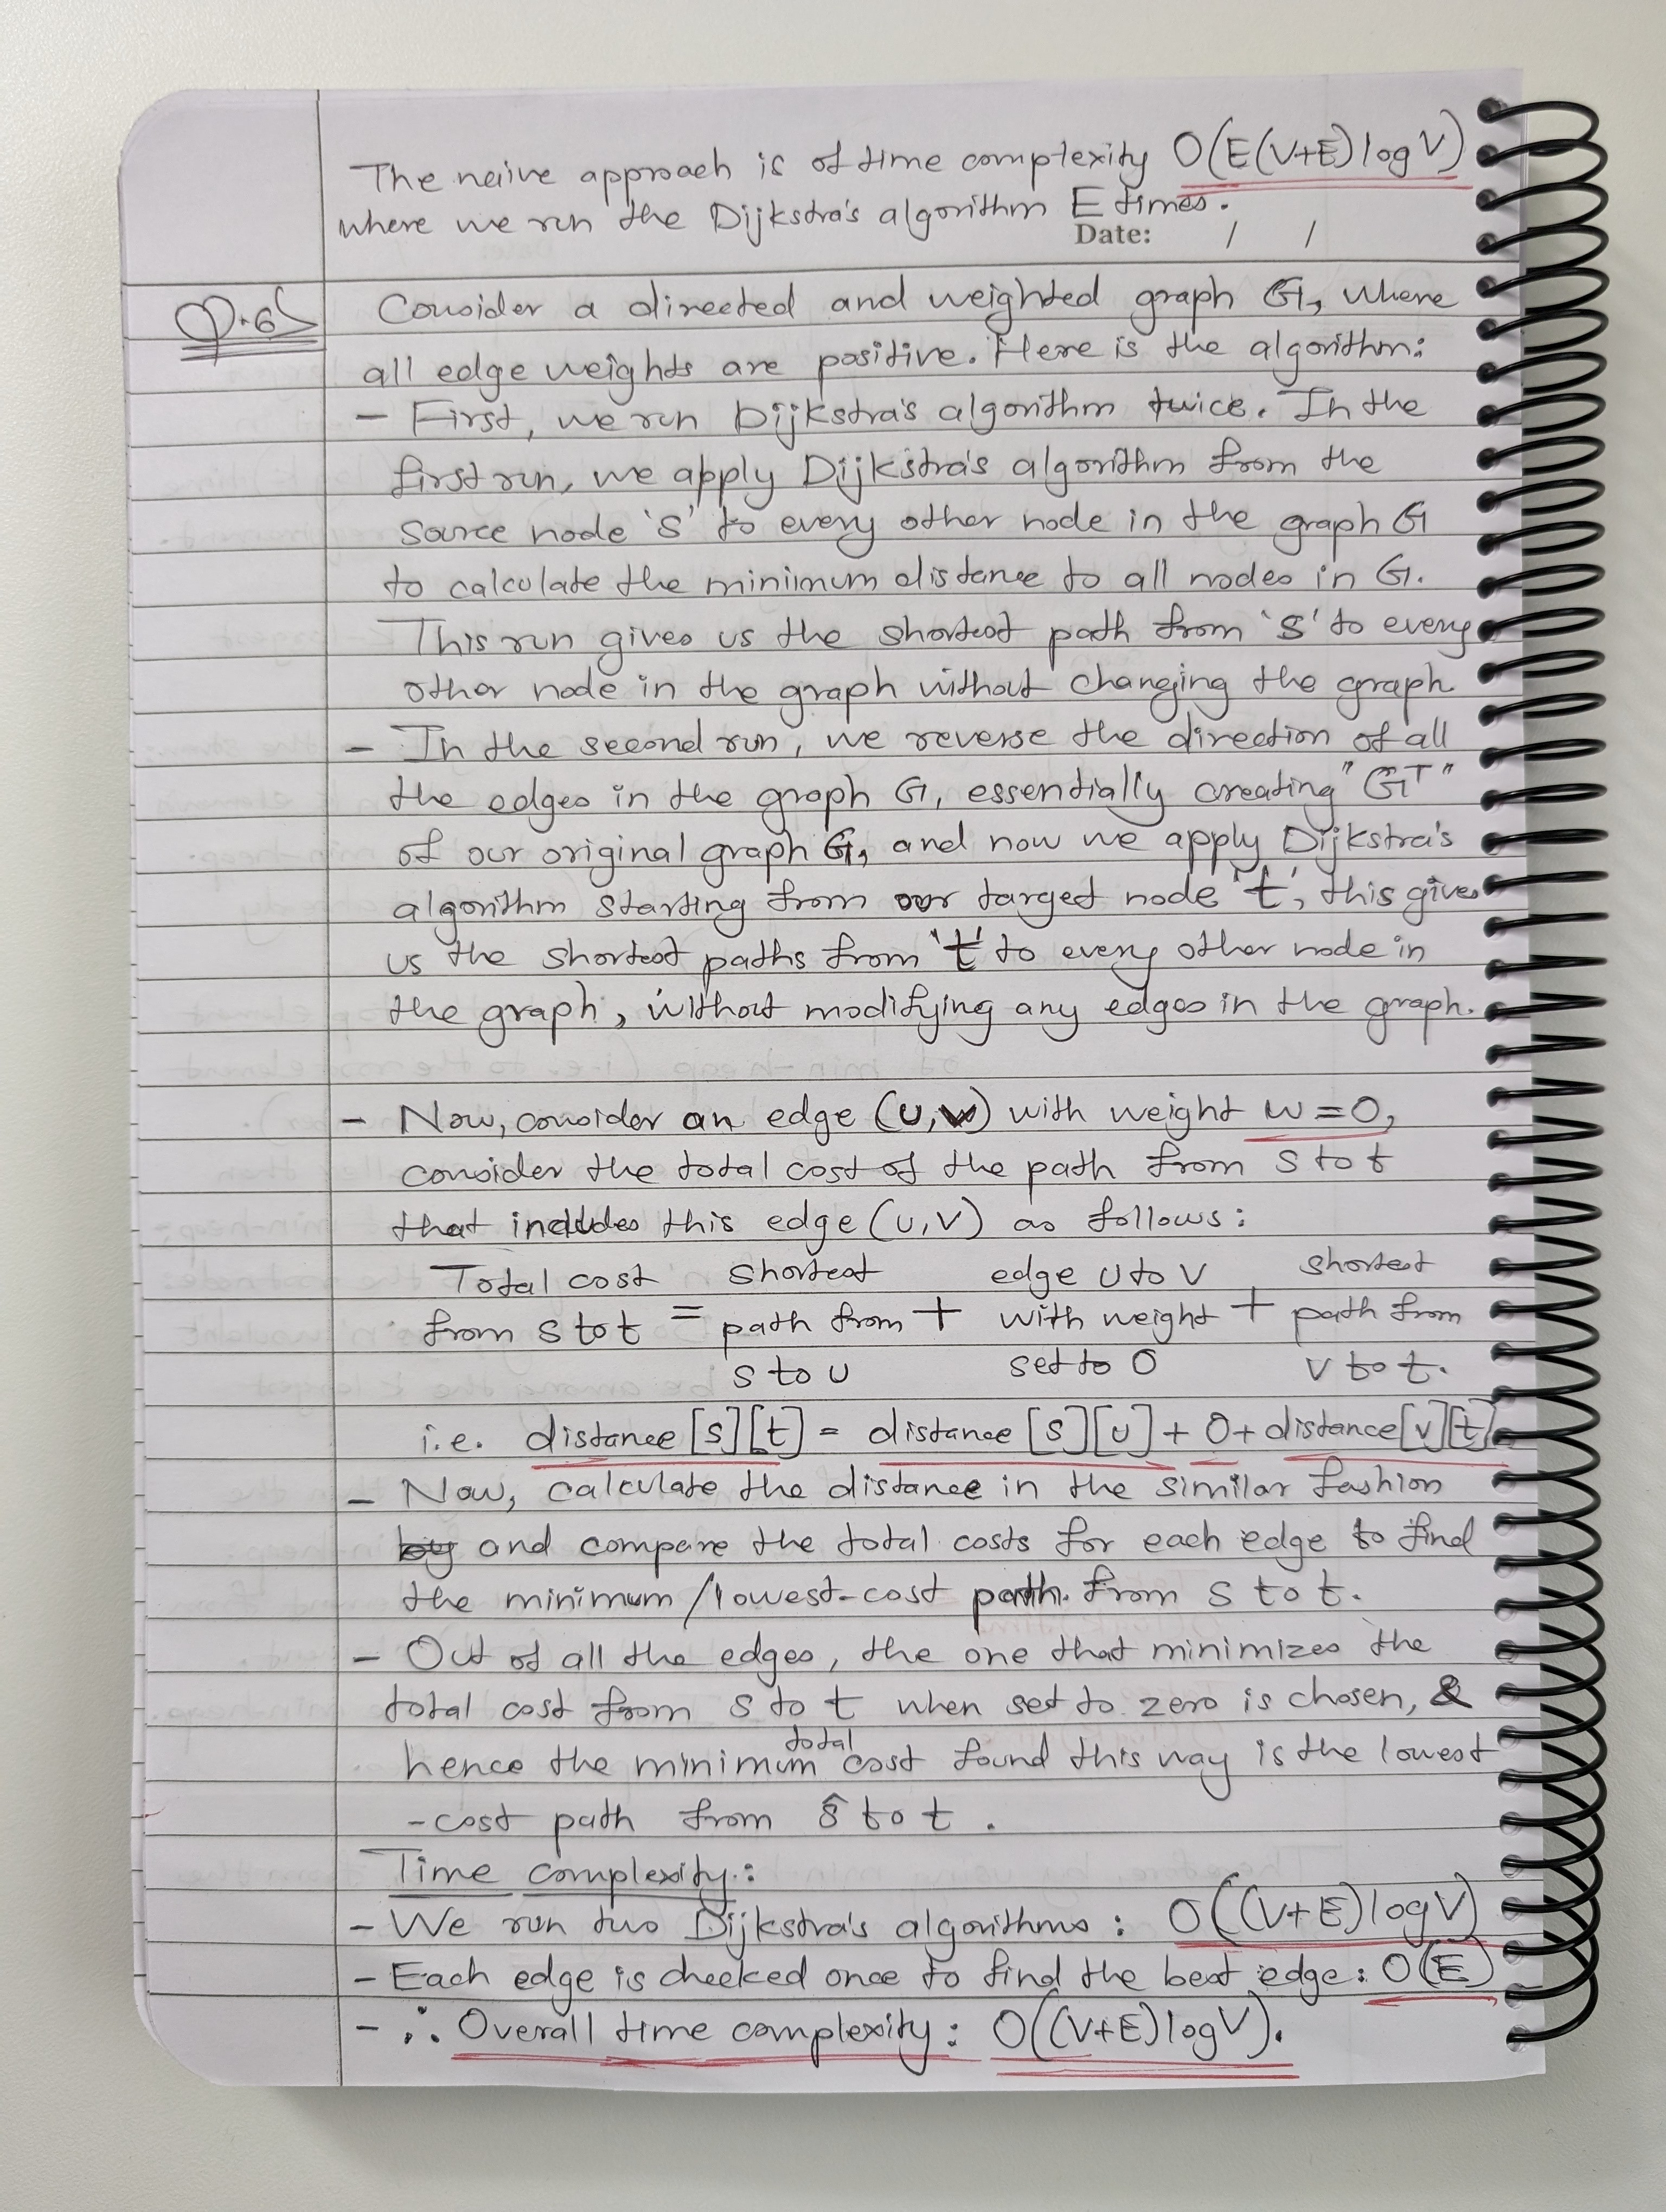 The naive approach is of time complexity O(E(V+E)logV)
where we run the Dijkstra's algorithm E times.
Date: / /
Q.6
Consider a directed and weighted graph G, where
all edge weights are positive. Here is the algorithm:
- First, we run Dijkstra's algorithm twice. In the
first run, we apply Dijkstra's algorithm from the
source node 's' to every other node in the graph G
to calculate the minimum distance to all nodes in G.
This run gives us the shortest path from 's' to every
other node in the graph without changing the graph.
- In the second run, we reverse the direction of all
the edges in the graph G, essentially creating "G^T"
of our original graph G, and now we apply Dijkstra's
algorithm starting from our target node 't', this gives
us the shortest paths from 't' to every other node in
the graph, without modifying any edges in the graph.
- Now, consider an edge (u,v) with weight w=0,
consider the total cost of the path from s to t
that includes this edge (u,v) as follows:
Total cost shortest edge u to v shortest
from s to t = path from + with weight + path from
s to u set to 0 v to t.
i.e. distance [s][t] = distance [s][u] + 0 + distance[v][t]
- Now, calculate the distance in the similar fashion
by and compare the total costs for each edge to find
the minimum/lowest-cost path from s to t.
- Out of all the edges, the one that minimizes the
total cost from s to t when set to zero is chosen, &
hence the minimum total cost found this way is the lowest
-cost path from s to t.
Time complexity:
- We run two Dijkstra's algorithms: O((V+E)logV)
- Each edge is checked once to find the best edge: O(E)
- ∴ Overall time complexity: O((V+E)logV).